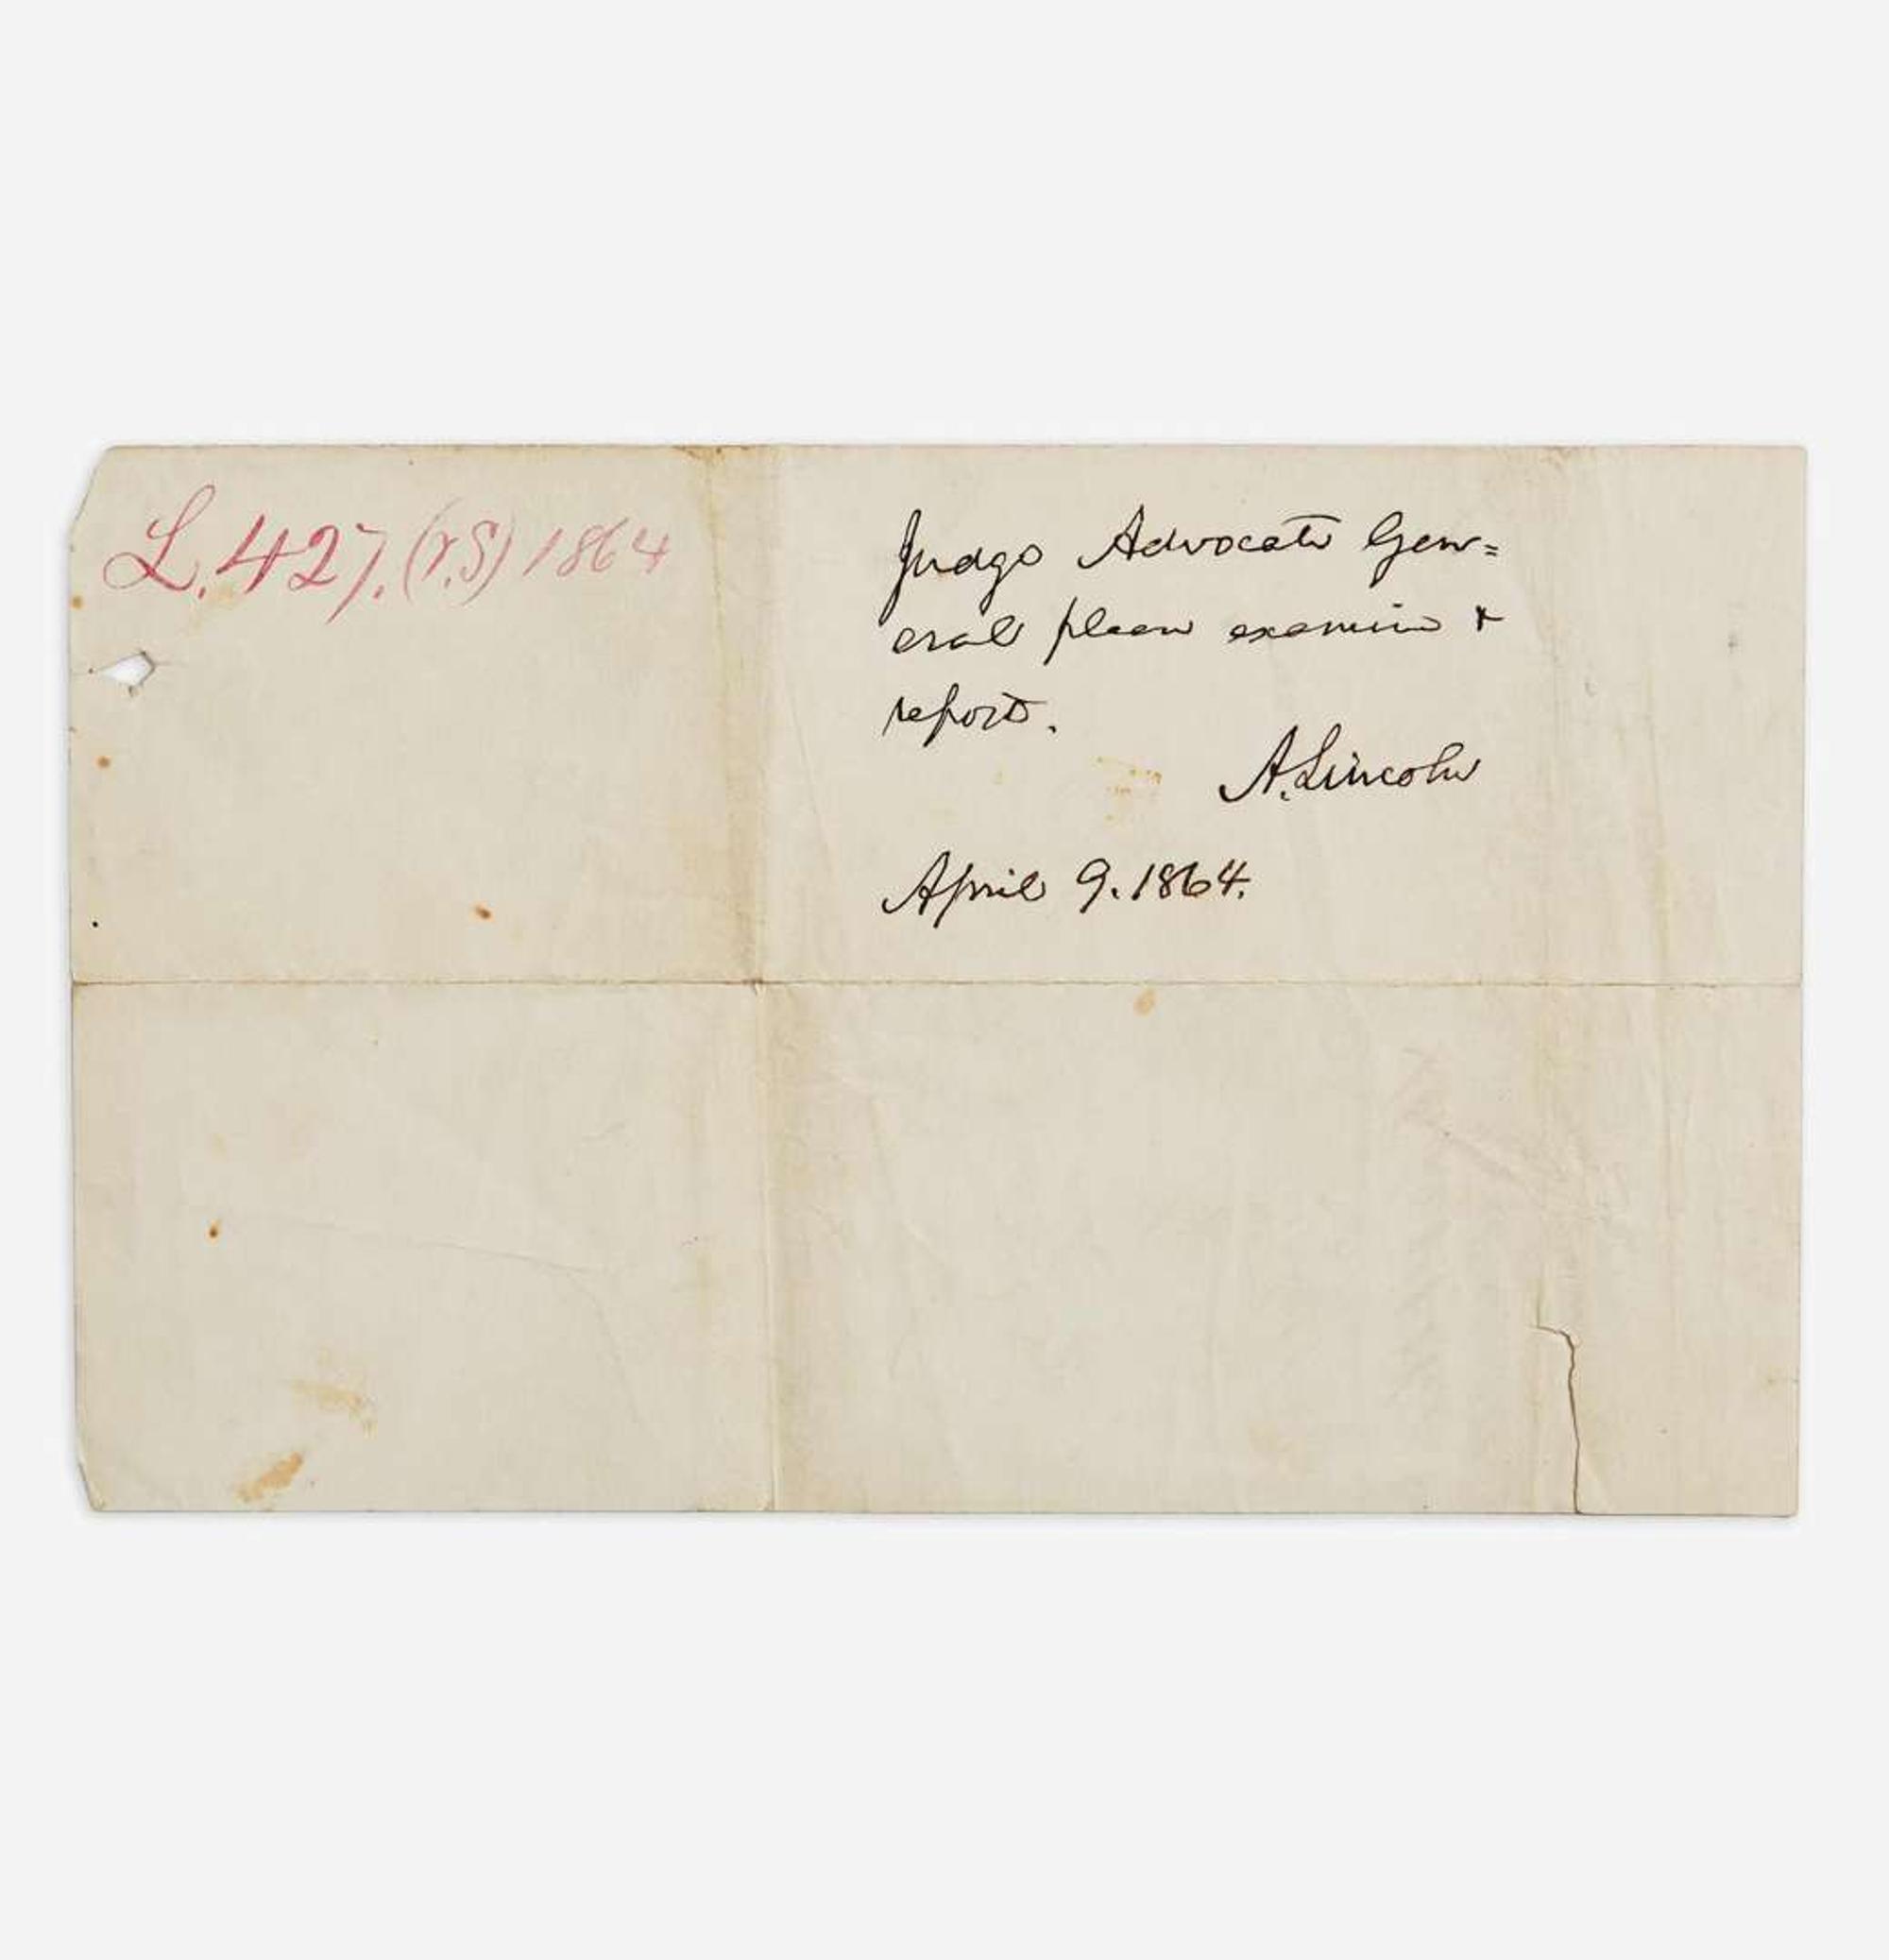 L.427.(V.S) 1864
Judge Advocate Gen=
eral please examine &
report.
A. Lincoln
April 9. 1864.